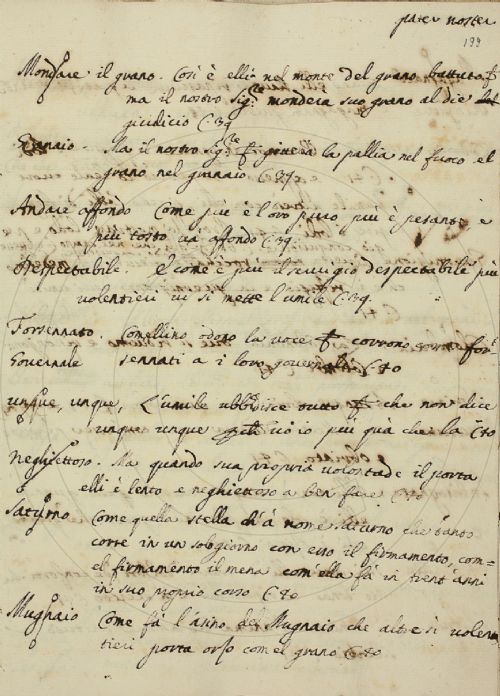 pater noster
199
Mondare il grano. Così è elli nel monte del grano battuto
ma il nostro Sig.re monderà suo grano al die
giudicio C. 39
Granaio. Ma il nostro Sig.re gitterà la pallia nel fuoco el
grano nel granaio C. 39
Andare affondo Come più è l'oro puro più è pesante e
più tosto va affondo C. 39.
Despectabile. E come è più il servigio despectabile più
volentieri vi si mette l'umile C. 39.
Forsennato. Comellino odono la voce corrono come for
Governale sennati a i loro governali C. 40
unque, unque, L'umile ubbidisce tutto che non dice
unque unque io più qua che la C. 40
Neghiettoso. Ma quando sua propria volontade il porta
elli è lento e neghiettoso a ben fare C. 40
Saturno Come quella stella ch'à nome Saturno che tanto
corre in un sol giorno con esso il firmamento, com=
el firmamento il mena com'ella fa in trent'anni
in suo proprio corso C. 40
Mugnaio Come fa l'asino del Mugnaio che altresì volen
tieri porta orso com el grano C. 40